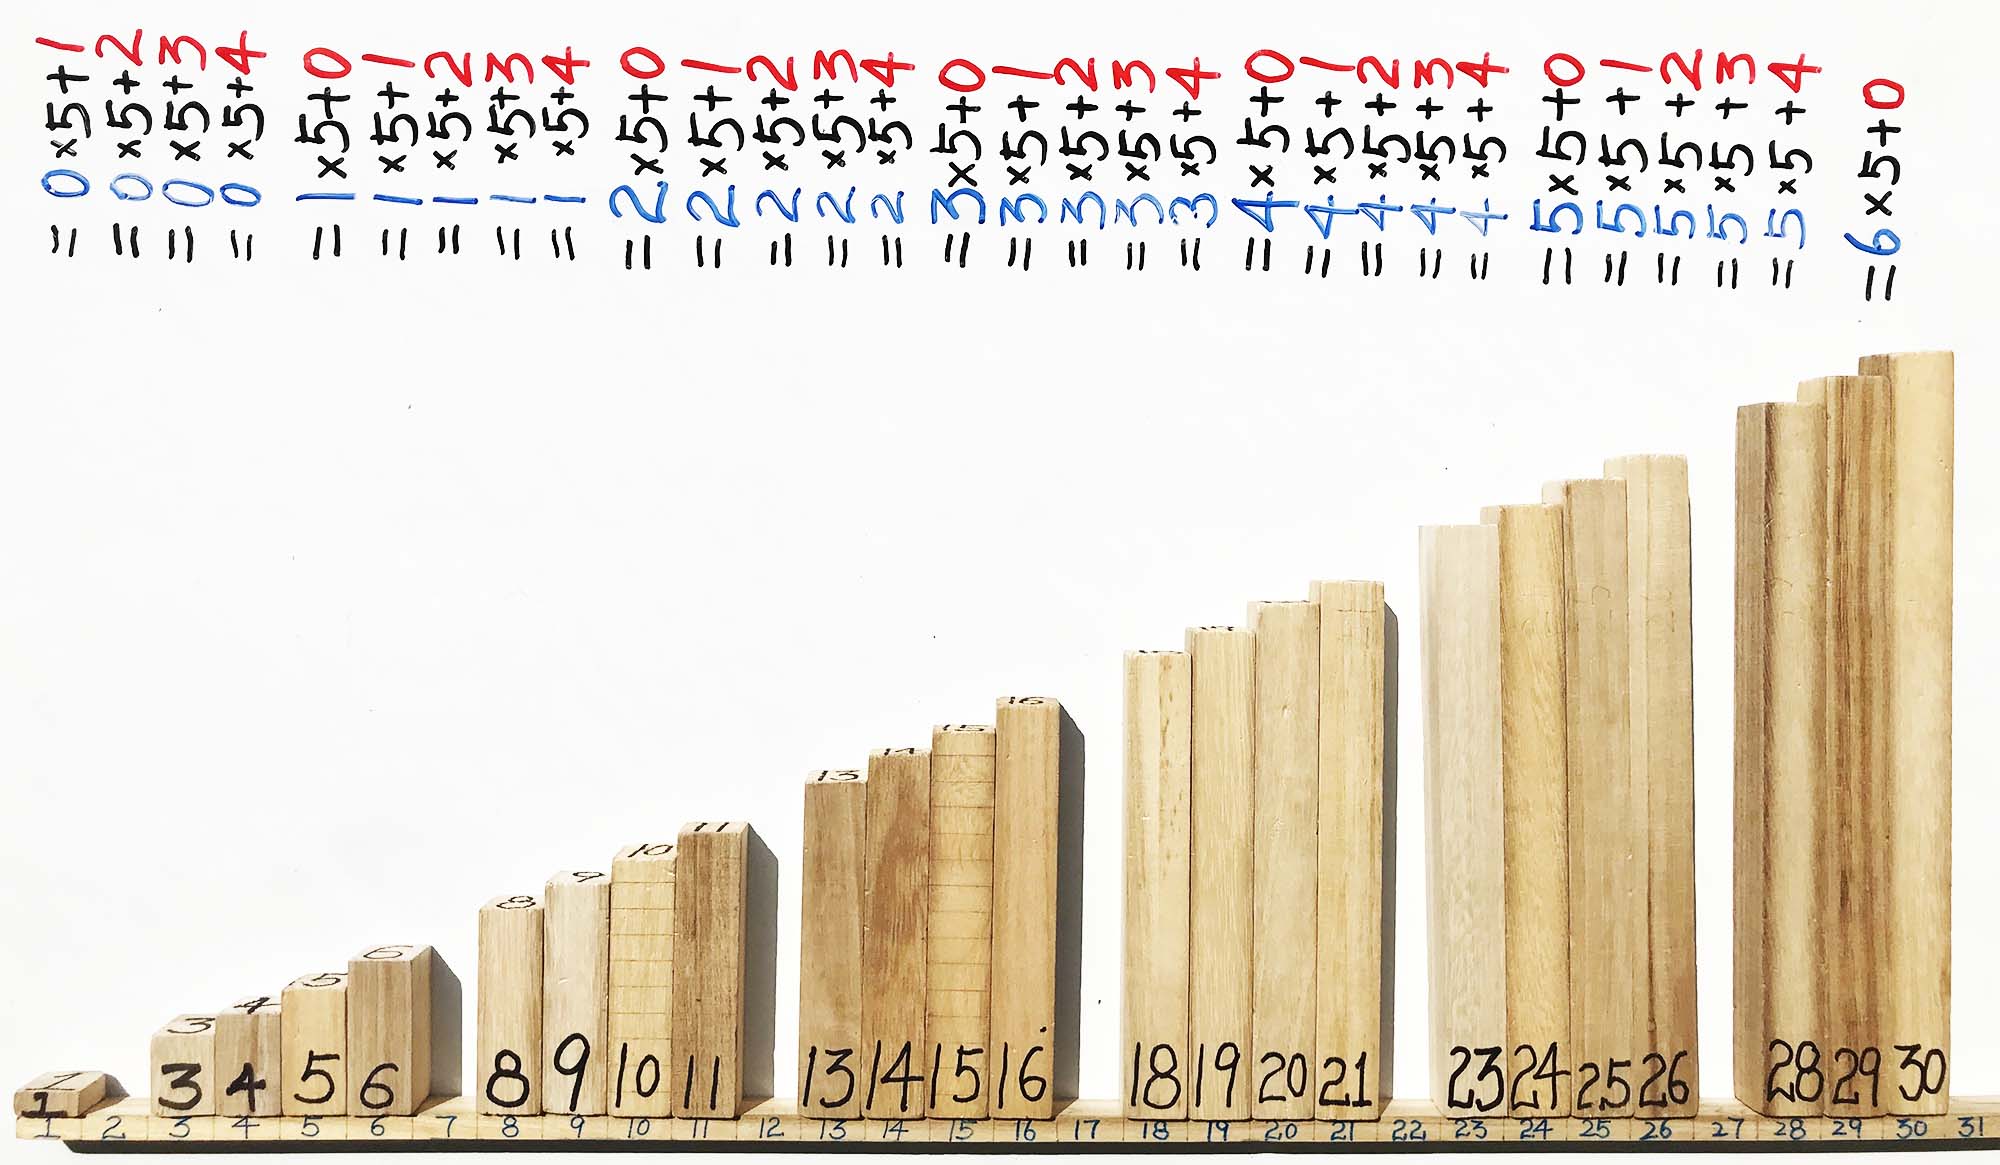 =0×5+1
=0×5+2
=0×5+3
=0×5+4
=1×5+0
=1×5+1
=1×5+2
=1×5+3
=1×5+4
=2×5+0
=2×5+1
=2×5+2
=2×5+3
=2×5+4
=3×5+0
=3×5+1
=3×5+2
=3×5+3
=3×5+4
=4×5+0
=4×5+1
=4×5+2
=4×5+3
=4×5+4
=5×5+0
=5×5+1
=5×5+2
=5×5+3
=5×5+4
=6×5+0
1 3 4 5 6 8 9 10 11 13 14 15 16
1 3 4 5 6 8 9 10 11 13 14 15 16 18 19 20 21 23 24 25 26 28 29 30
1 2 3 4 5 6 7 8 9 10 11 12 13 14 15 16 17 18 19 20 21 22 23 24 25 26 27 28 29 30 31